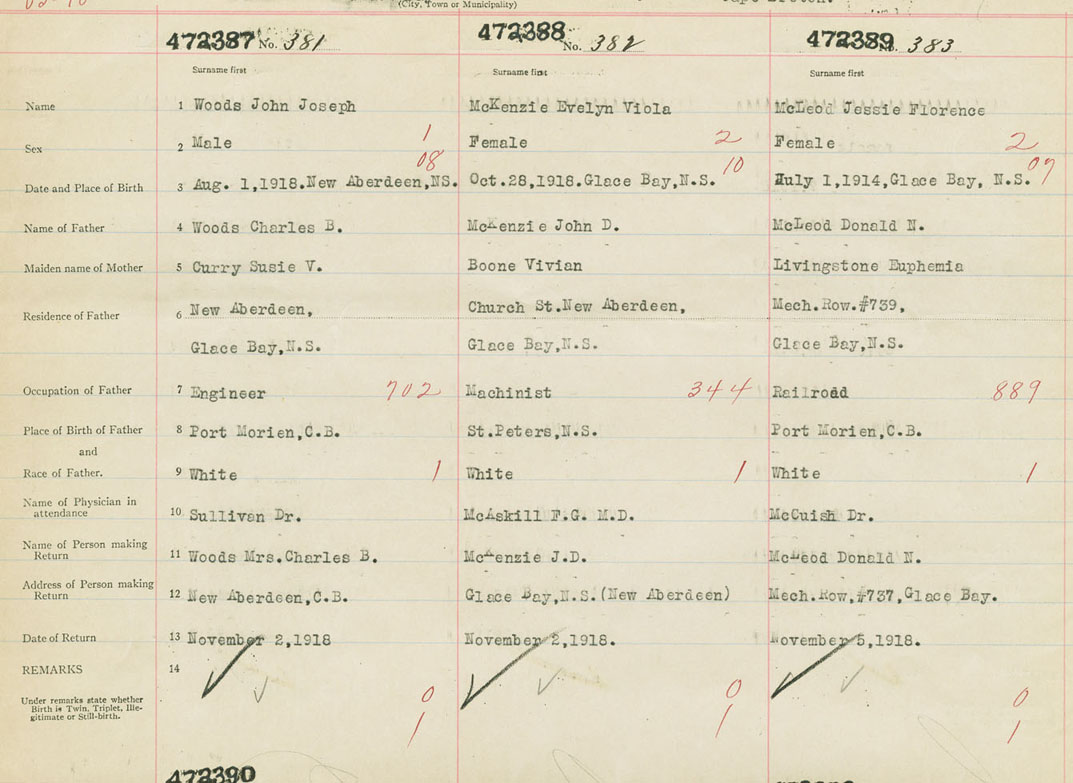 (City, Town or Municipality)
472387 No. 381 472388 No. 382 472389 No. 383
Surname first Surname first Surname first
Name 1 Woods John Joseph McKenzie Evelyn Viola McLeod Jessie Florence
Sex 2 Male 1 Female 2 Female 2
08 10 07
Date and Place of Birth 3 Aug. 1,1918.New Aberdeen,NS. Oct.28,1918.Glace Bay,N.S. July 1,1914,Glace Bay, N.S.
Name of Father 4 Woods Charles B. McKenzie John D. McLeod Donald N.
Maiden name of Mother 5 Curry Susie V. Boone Vivian Livingstone Euphemia
Residence of Father 6 New Aberdeen, Church St.New Aberdeen, Mech.Row.#739,
Glace Bay,N.S. Glace Bay,N.S. Glace Bay,N.S.
Occupation of Father 7 Engineer 702 Machinist 344 Railroad 889
Place of Birth of Father 8 Port Morien,C.B. St.Peters,N.S. Port Morien,C.B.
and
Race of Father. 9 White 1 White 1 White 1
Name of Physician in
attendance 10 Sullivan Dr. McAskill F.G. M.D. McCuish Dr.
Name of Person making
Return 11 Woods Mrs.Charles B. McKenzie J.D. McLeod Donald N.
Address of Person making
Return 12 New Aberdeen,C.B. Glace Bay,N.S.(New Aberdeen) Mech.Row,#737,Glace Bay.
Date of Return 13 November 2,1918 November 2,1918. November 5,1918.
REMARKS 14
Under remarks state whether
Birth is Twin, Triplet, Ille-
gitimate or Still-birth.
0 0 0
1 1 1
472390